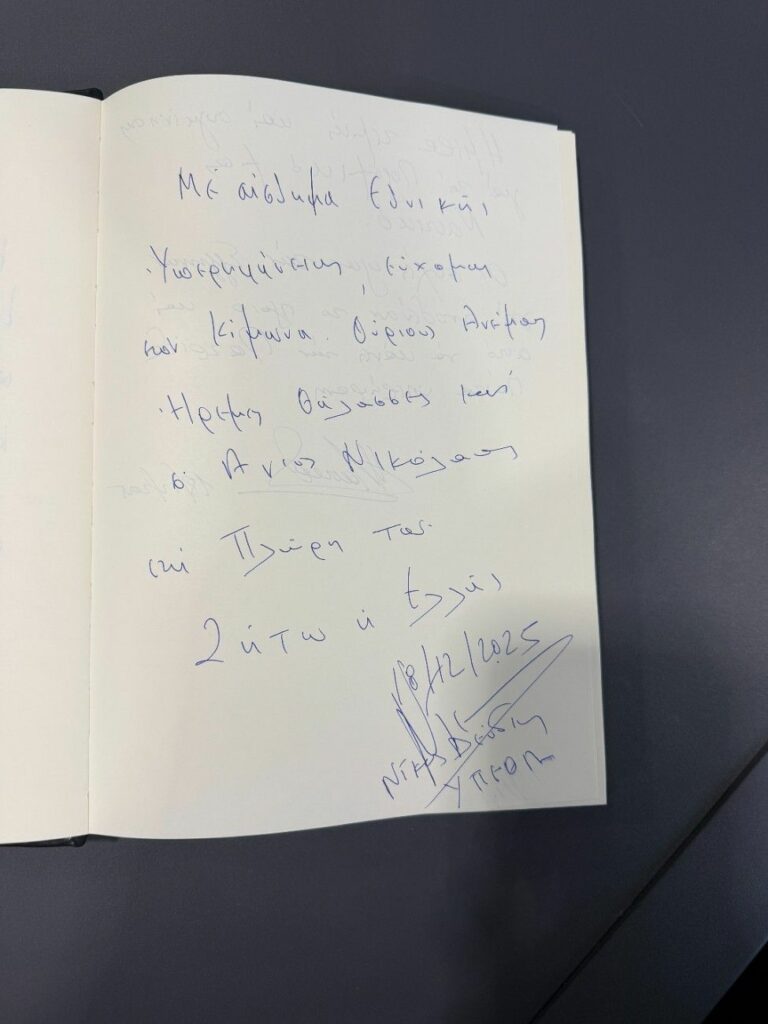 Με αίσθημα Εθνικής
Υπερηφάνειας, εύχομαι
στον Κίμωνα Ούριους Ανέμους
Ήρεμη Θάλασσα και
ο Άγιος Νικόλαος
στη Πλώρη του
Ζήτω η Ελλάς
18/12/2025
Νίκος Δένδιας
ΥΠΕΘΑ